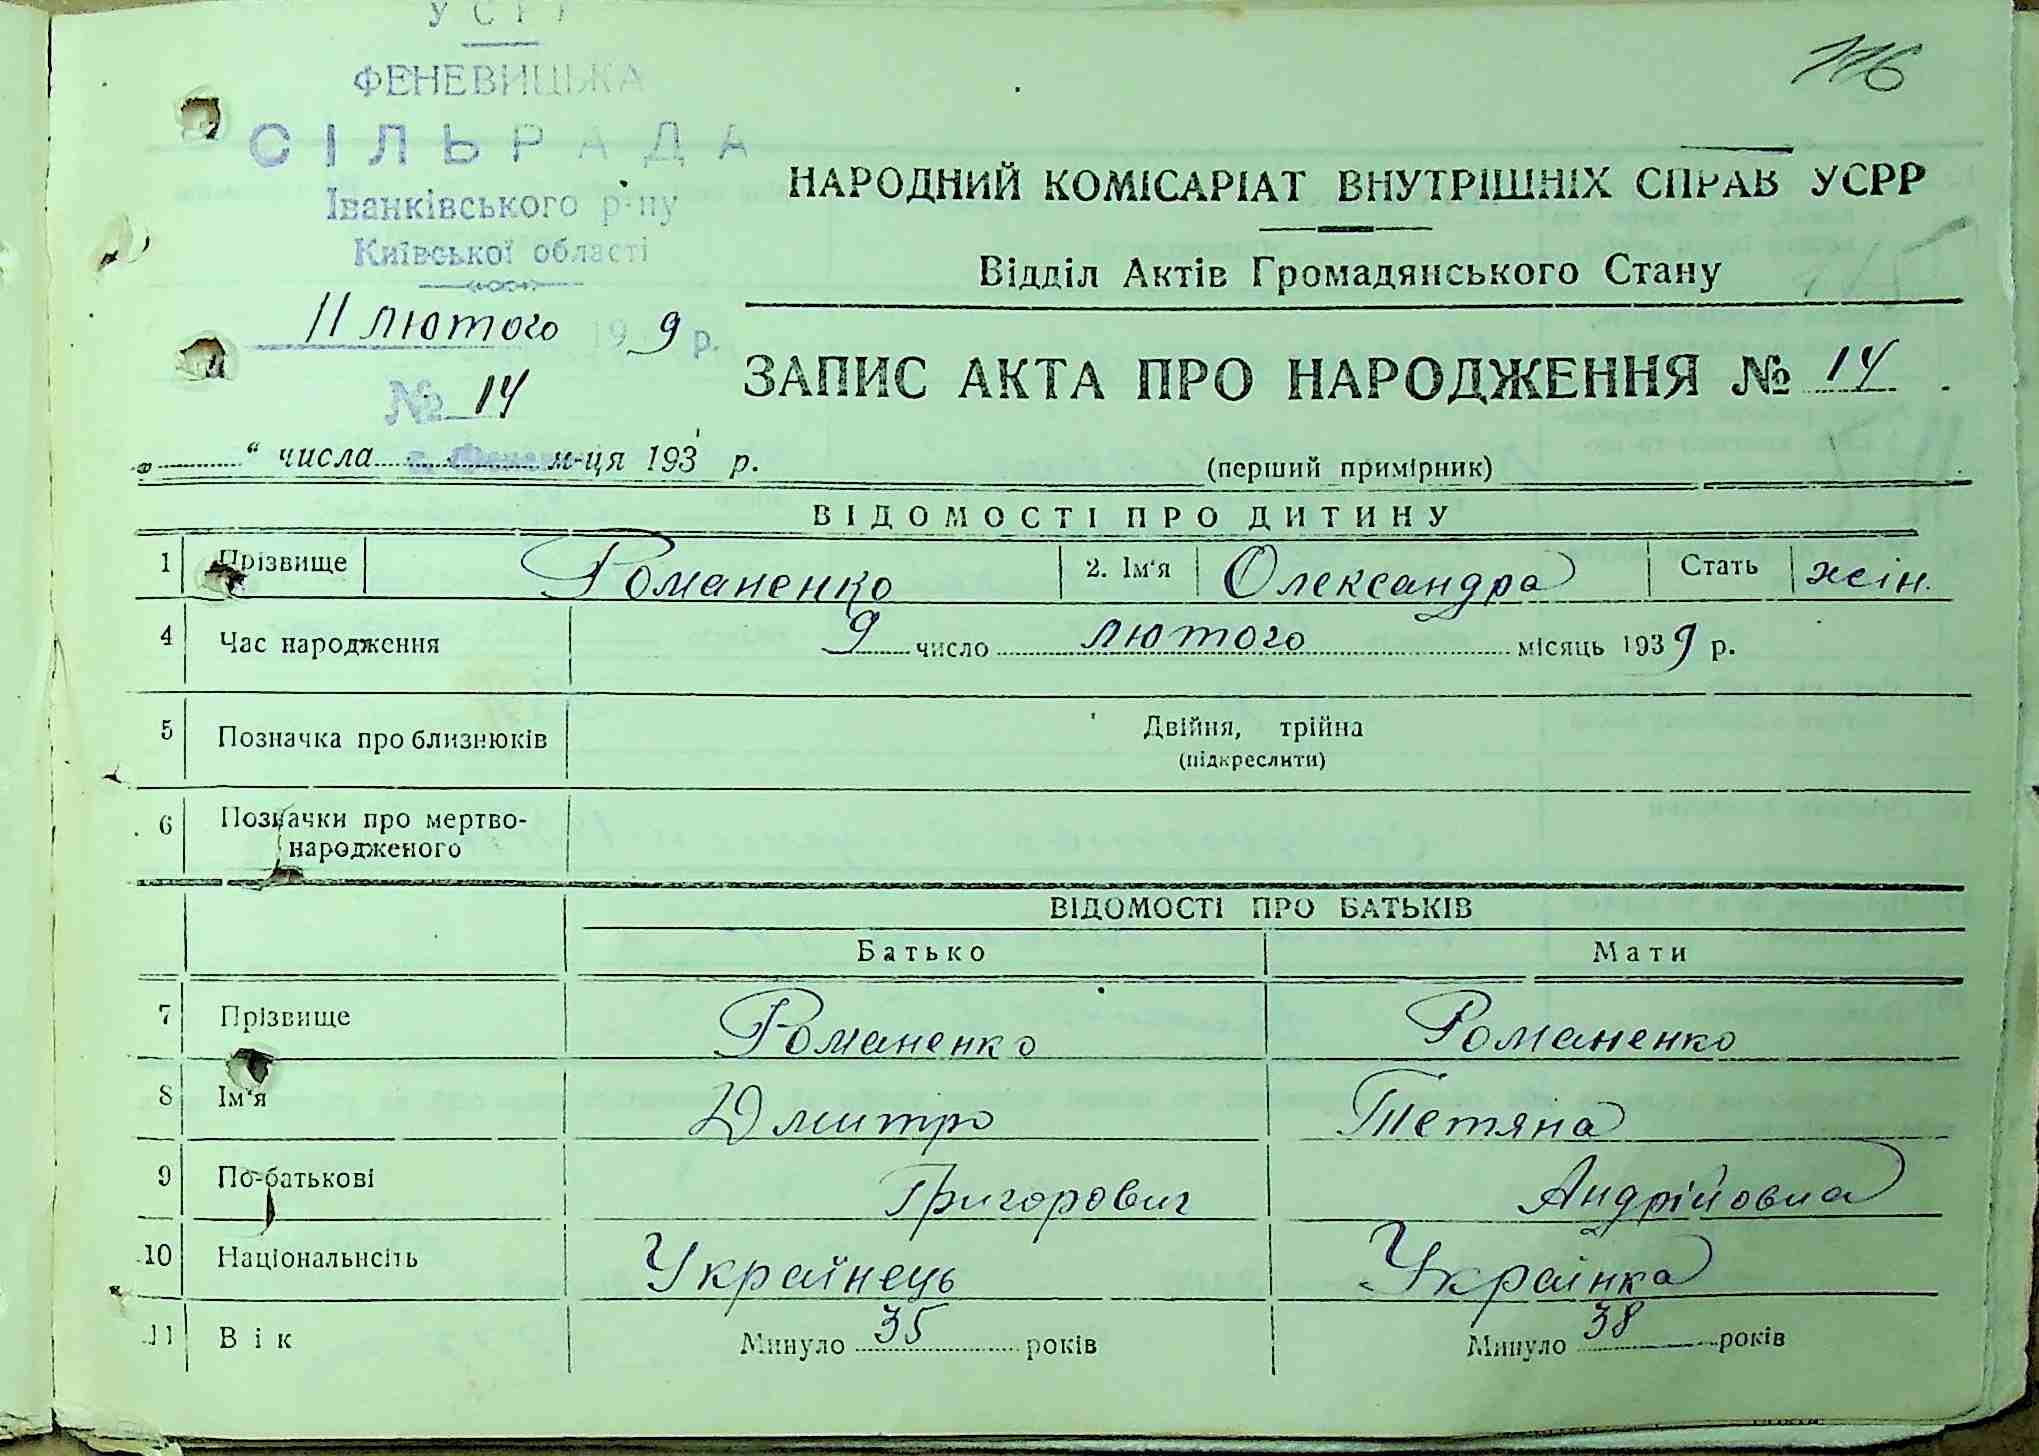 УСРР
ФЕНЕВИЦЬКА
СІЛЬРАДА
Іванківського р-ну
Київської області
11 лютого 19 9 р.
№ 14
116
НАРОДНИЙ КОМІСАРІАТ ВНУТРІШНІХ СПРАВ УСРР
Відділ Актів Громадянського Стану
ЗАПИС АКТА ПРО НАРОДЖЕННЯ № 14
„ “ числа м-ця 193 р.
(перший примірник)
ВІДОМОСТІ ПРО ДИТИНУ
1 Прізвище Романенко 2. Ім‘я Олександра Стать жін.
4 Час народження 9 число лютого місяць 1939 р.
5 Позначка про близнюків Двійня, трійна
(підкреслити)
6 Позначки про мертво-
народженого
ВІДОМОСТІ ПРО БАТЬКІВ
Батько Мати
7 Прізвище Романенко Романенко
8 Ім‘я Дмитро Тетяна
9 По-батькові Григорович Андрійовна
10 Національність Українець Українка
11 Вік Минуло 35 років Минуло 38 років